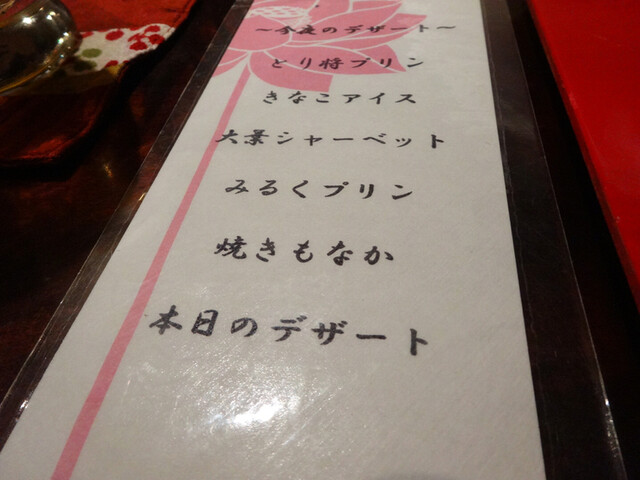 ～今夜のデザート～
とり将プリン
きなこアイス
大葉シャーベット
みるくプリン
焼きもなか
本日のデザート